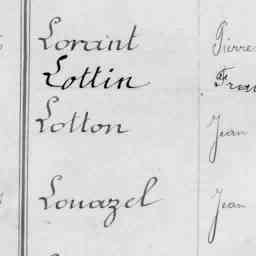 Lorant Pierre
Lottin
Lotton Jean
Louazel Jean